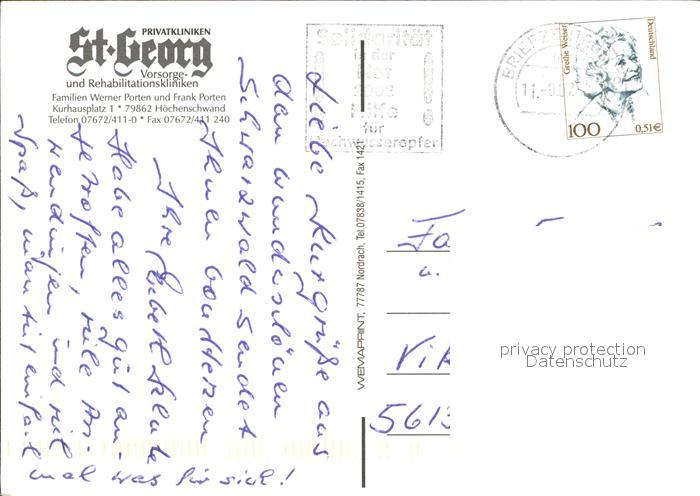 PRIVATKLINIKEN
St·Georg
Vorsorge-
und Rehabilitationskliniken
Familien Werner Porten und Frank Porten
Kurhausplatz 1 * 79862 Höchenschwand
Telefon 07672/411-0 * Fax 07672/411 240
Solidarität
in der
NOT
2002
Hilfe
für
Hochwasseropfer
BRIEFZENTRUM
11.-9.02
Große Weiser
Deutschland
100
0,51€
Liebe Kurgrüße aus
dem wunderschönen
Schwarzwald sendet
Ihnen
Ihre
Habe alles gut an-
getroffen, viele An-
wendungen und viel
Spaß, man tut einfach
mal was für sich!
WEMAPRINT, 77787 Nordrach, Tel.07838/1415, Fax 1421
Fa
u.
Vik
5613
privacy protection
Datenschutz